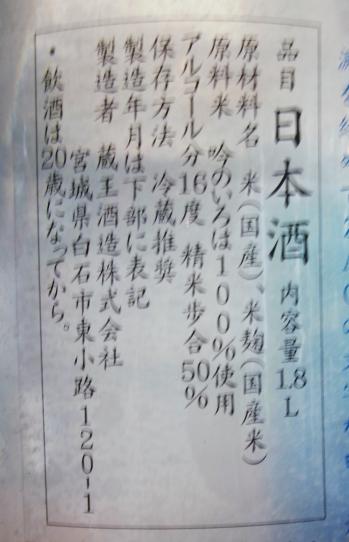 品目 日本酒 内容量1.8L
原材料名 米(国産)、米麹(国産米)
原料米 吟のいろは100%使用
アルコール分16度 精米歩合50%
保存方法 冷蔵推奨
製造年月は下部に表記
製造者 蔵王酒造株式会社
宮城県白石市東小路120-1
・飲酒は20歳になってから。